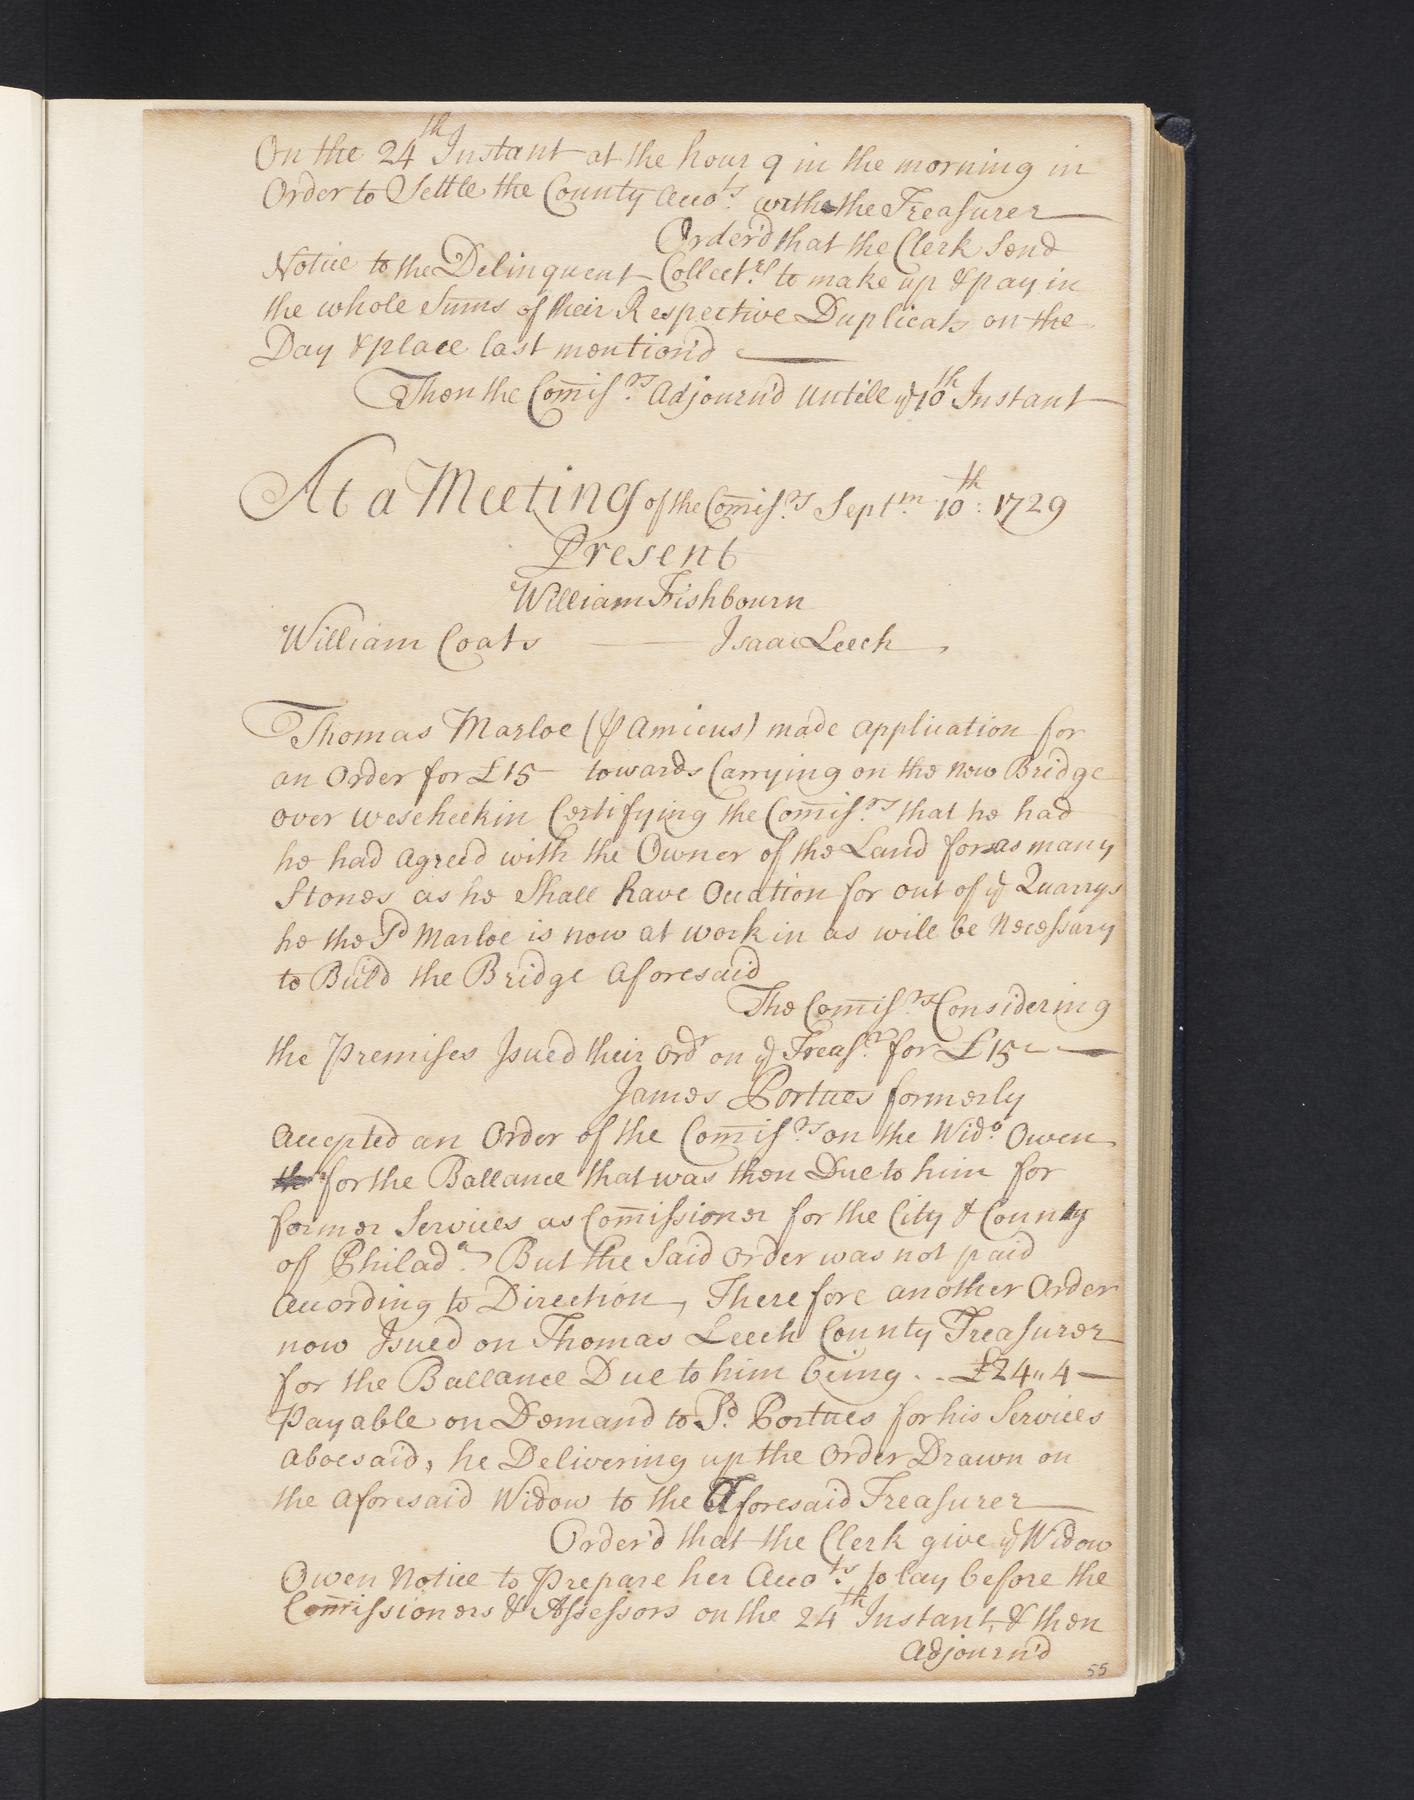 On the 24th Instant at the hour 9 in the morning in
Order to Settle the County Accots. with the Treasurer
Order'd that the Clerk Send
Notice to the Delinquent Collectrs. to make up & pay in
the whole Sums of their Respective Duplicats on the
Day & place last mention'd
Then the Comisrs. Adjourn'd Untill ye 10th Instant
At a Meeting of the Comisrs. Septm. 10th: 1729
Present
William Fishbourn
William Coats — Isaac Leech
Thomas Marloe (& Amicus) made application for
an Order for £15 — towards Carrying on the New Bridge
over wescheekin Certifying the Comisrs. that he had
he had Agreed with the Owner of the Land for as many
Stones as he Shall have Occation for out of ye Quarrys
he the Sd Marloe is now at work in as will be Necessary
to Build the Bridge aforesaid
The Comisrs. Considering
the Premises Isued their Ordr on ye Treasr. for £15 —
James Portues formerly
Accepted an Order of the Comisrs. on the Wido. Owen
for the Ballance that was then Due to him for
former Services as Comissioner for the City & County
of Philada. But the Said order was not paid
According to Direction, Therefore another Order
now Isued on Thomas Leech County Treasurer
for the Ballance Due to him being . . £24,, 4 —
Payable on Demand to Sd. Portues for his Services
aboesaid, he Delivering up the Order Drawn on
the aforesaid Widow to the Aforesaid Treasurer
Order'd that the Clerk give ye Widow
Owen Notice to Prepare her Accots. to lay before the
Comissioners & Assessors on the 24th Instant, & then
Adjourn'd
55